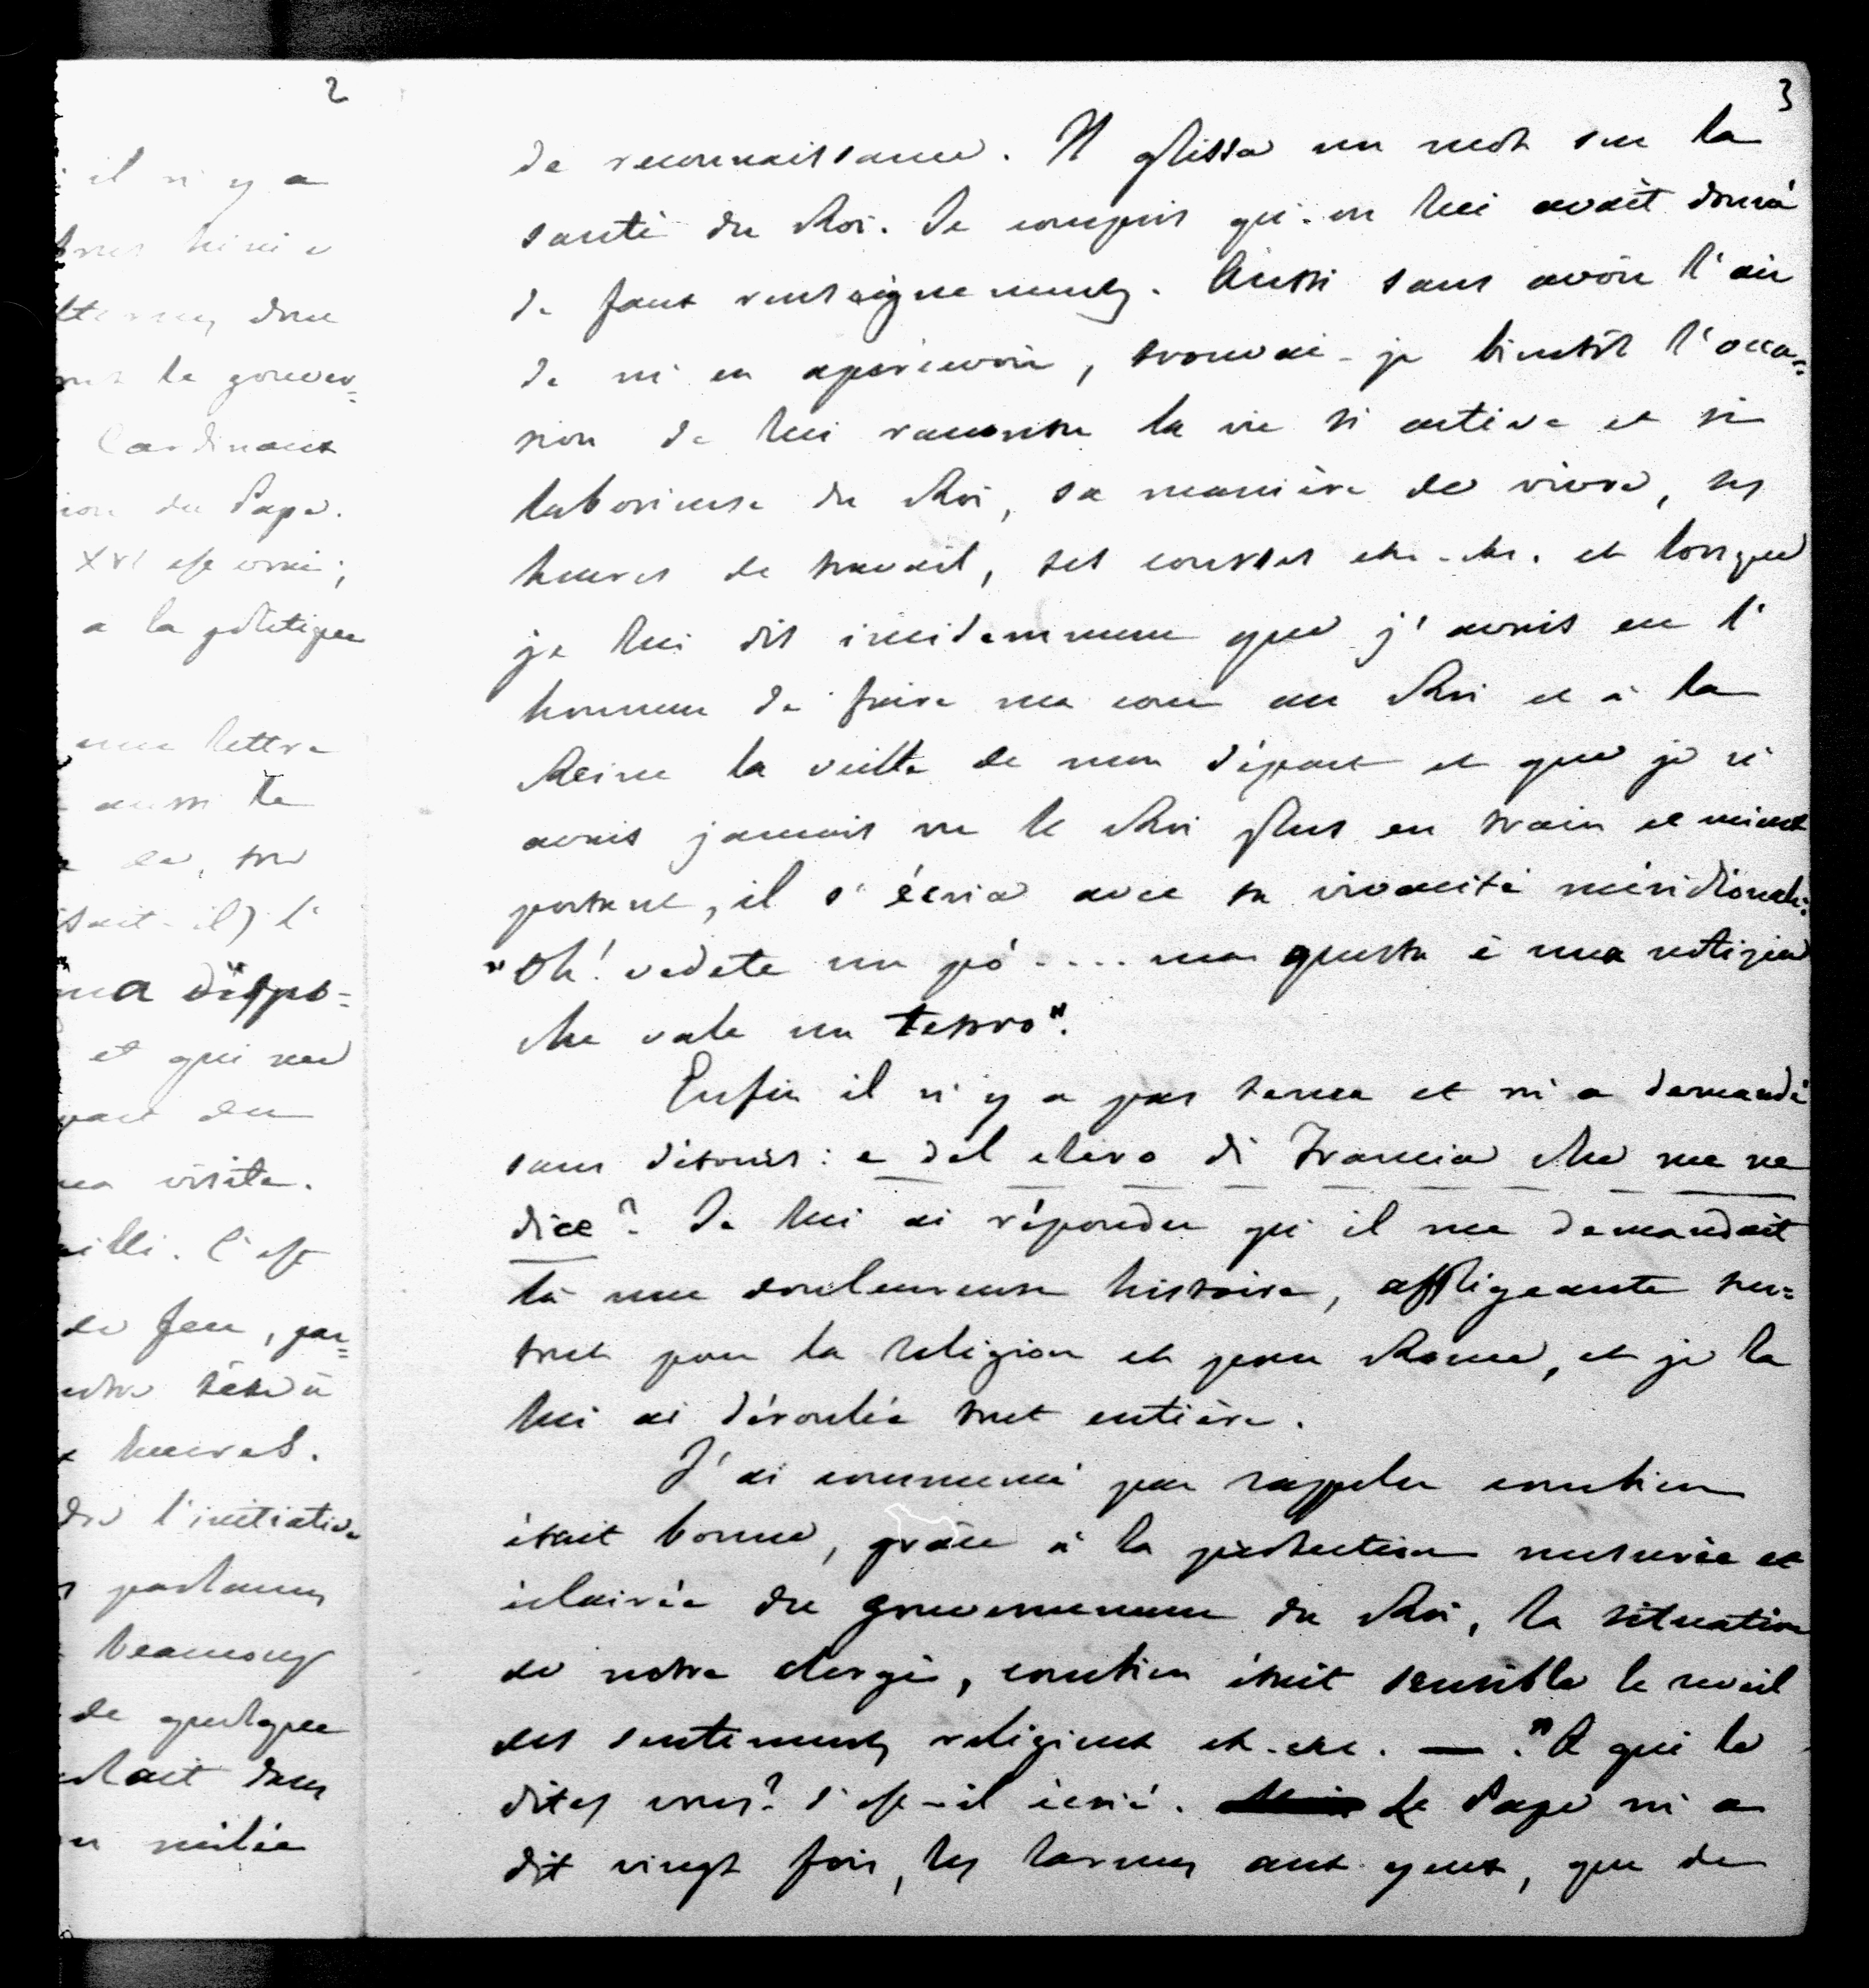 2
il n'y a
donc
le gouver=
Cardinaux
du Pape.
XVI est vrai;
a la politique
une lettre
aussi le
sait-il) l'
et qui me
visite.
C'est
de feu, par=
tête à
heures.
l'initiative
parlames
beaucoup
de quelque
dans
milie
3
de reconnaissance. Il glissa un mot sur la
santé du Roi. Je compris qu'on lui avait donné
de faux renseignements. Aussi sans avoir l'air
de m'en apercevoir, trouvai-je bientôt l'occa=
sion de lui raconter la vie si active et si
laborieuse du Roi, sa manière de vivre, ses
heures de travail, ses courses etc. etc. et lorsque
je lui dis incidemment que j'avais eu l'
honneur de faire ma cour au Roi et à la
Reine la veille de mon départ et que je n'
avais jamais vu le Roi plus en train et mieux
portant, il s'écria avec sa vivacité méridionale:
"Oh! vedete un pó .... ma questa è una notizia
che vale un tesoro".
Enfin il n'y a pas tenu et m'a demandé
sans détours: e del clero di Francia che me ne
dice? Je lui ai répondu qu'il me demandait
là une douloureuse histoire, affligeante sur=
tout pour la religion et pour Rome, et je la
lui ai déroulée tout entière.
J'ai commencé par rappeler combien
était bonne, grâce à la protection mesurée et
éclairée du gouvernement du Roi, la situation
de notre clergé, combien était sensible le reveil
des sentiments religieux et. etc. — "A qui le
dites vous? s'est-il écrié. Le Pape m'a
dit vingt fois, les larmes aux yeux, que de